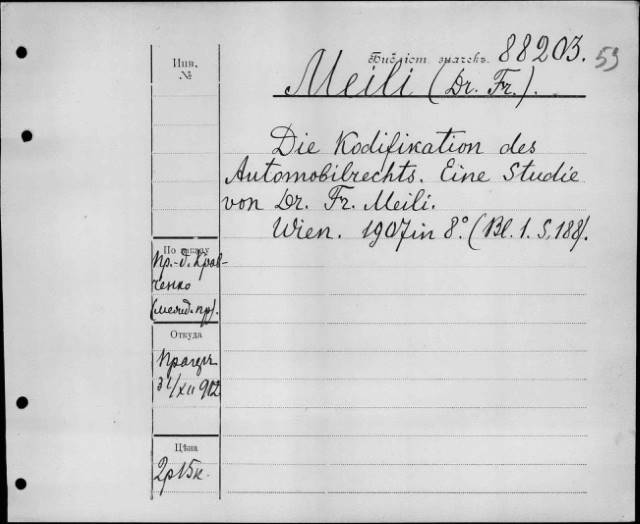 Инв.
№
Библіот. значекъ. 88203.
53
Meili (Dr. Fr.).
Die Kodifikation des
Automobilrechts. Eine Studie
von Dr. Fr. Meili.
Wien. 1907 in 8°. (Bl. 1. S. 188).
По заказу
Пр.-д. Кров-
ченко
Откуда
31/XII 912
Цѣна
2р 15к.